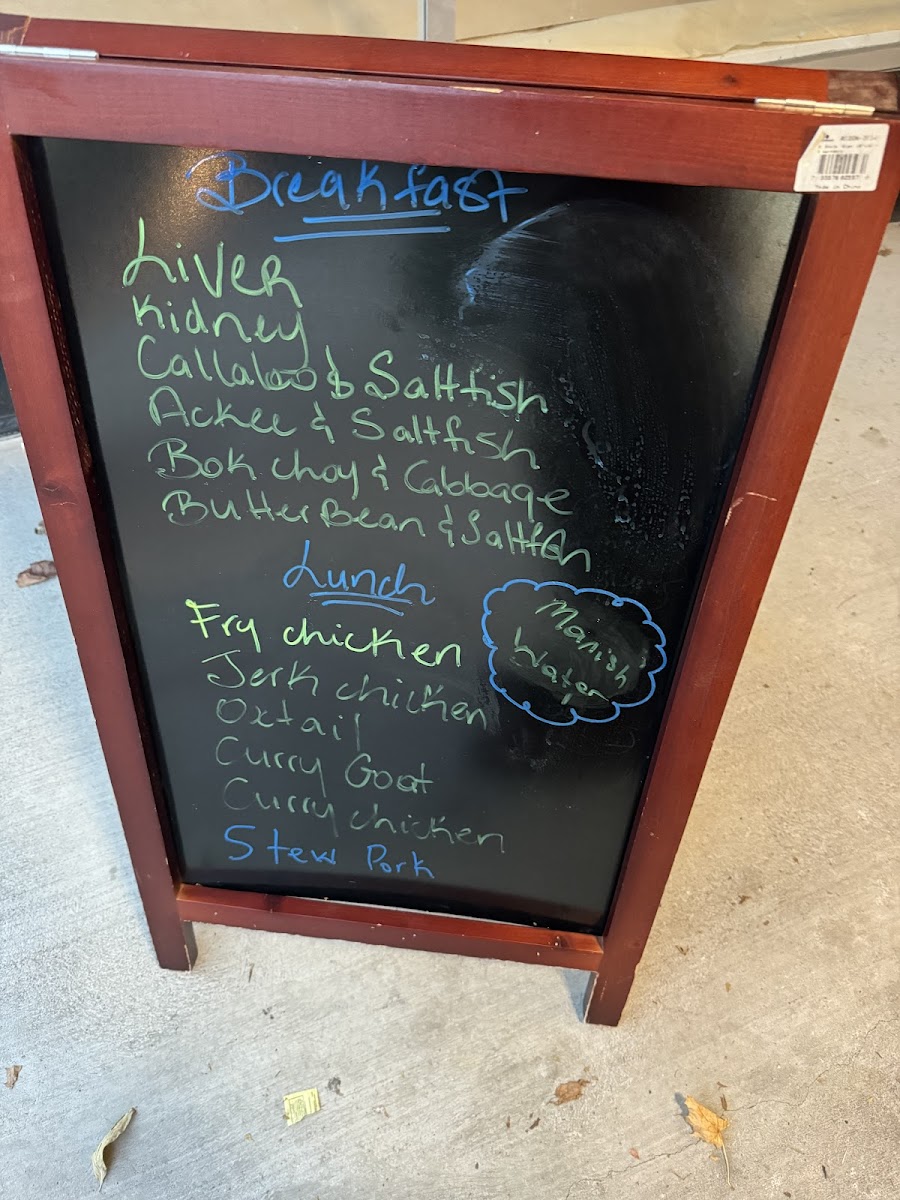 Breakfast
Liver
Kidney
Callaloo & Saltfish
Ackee & Saltfish
Bok choy & Cabbage
Butter Bean & Saltfish
Lunch
Fry chicken
Jerk chicken
Oxtail
Curry Goat
Curry chicken
Stew Pork
Manish
Water
Made in China